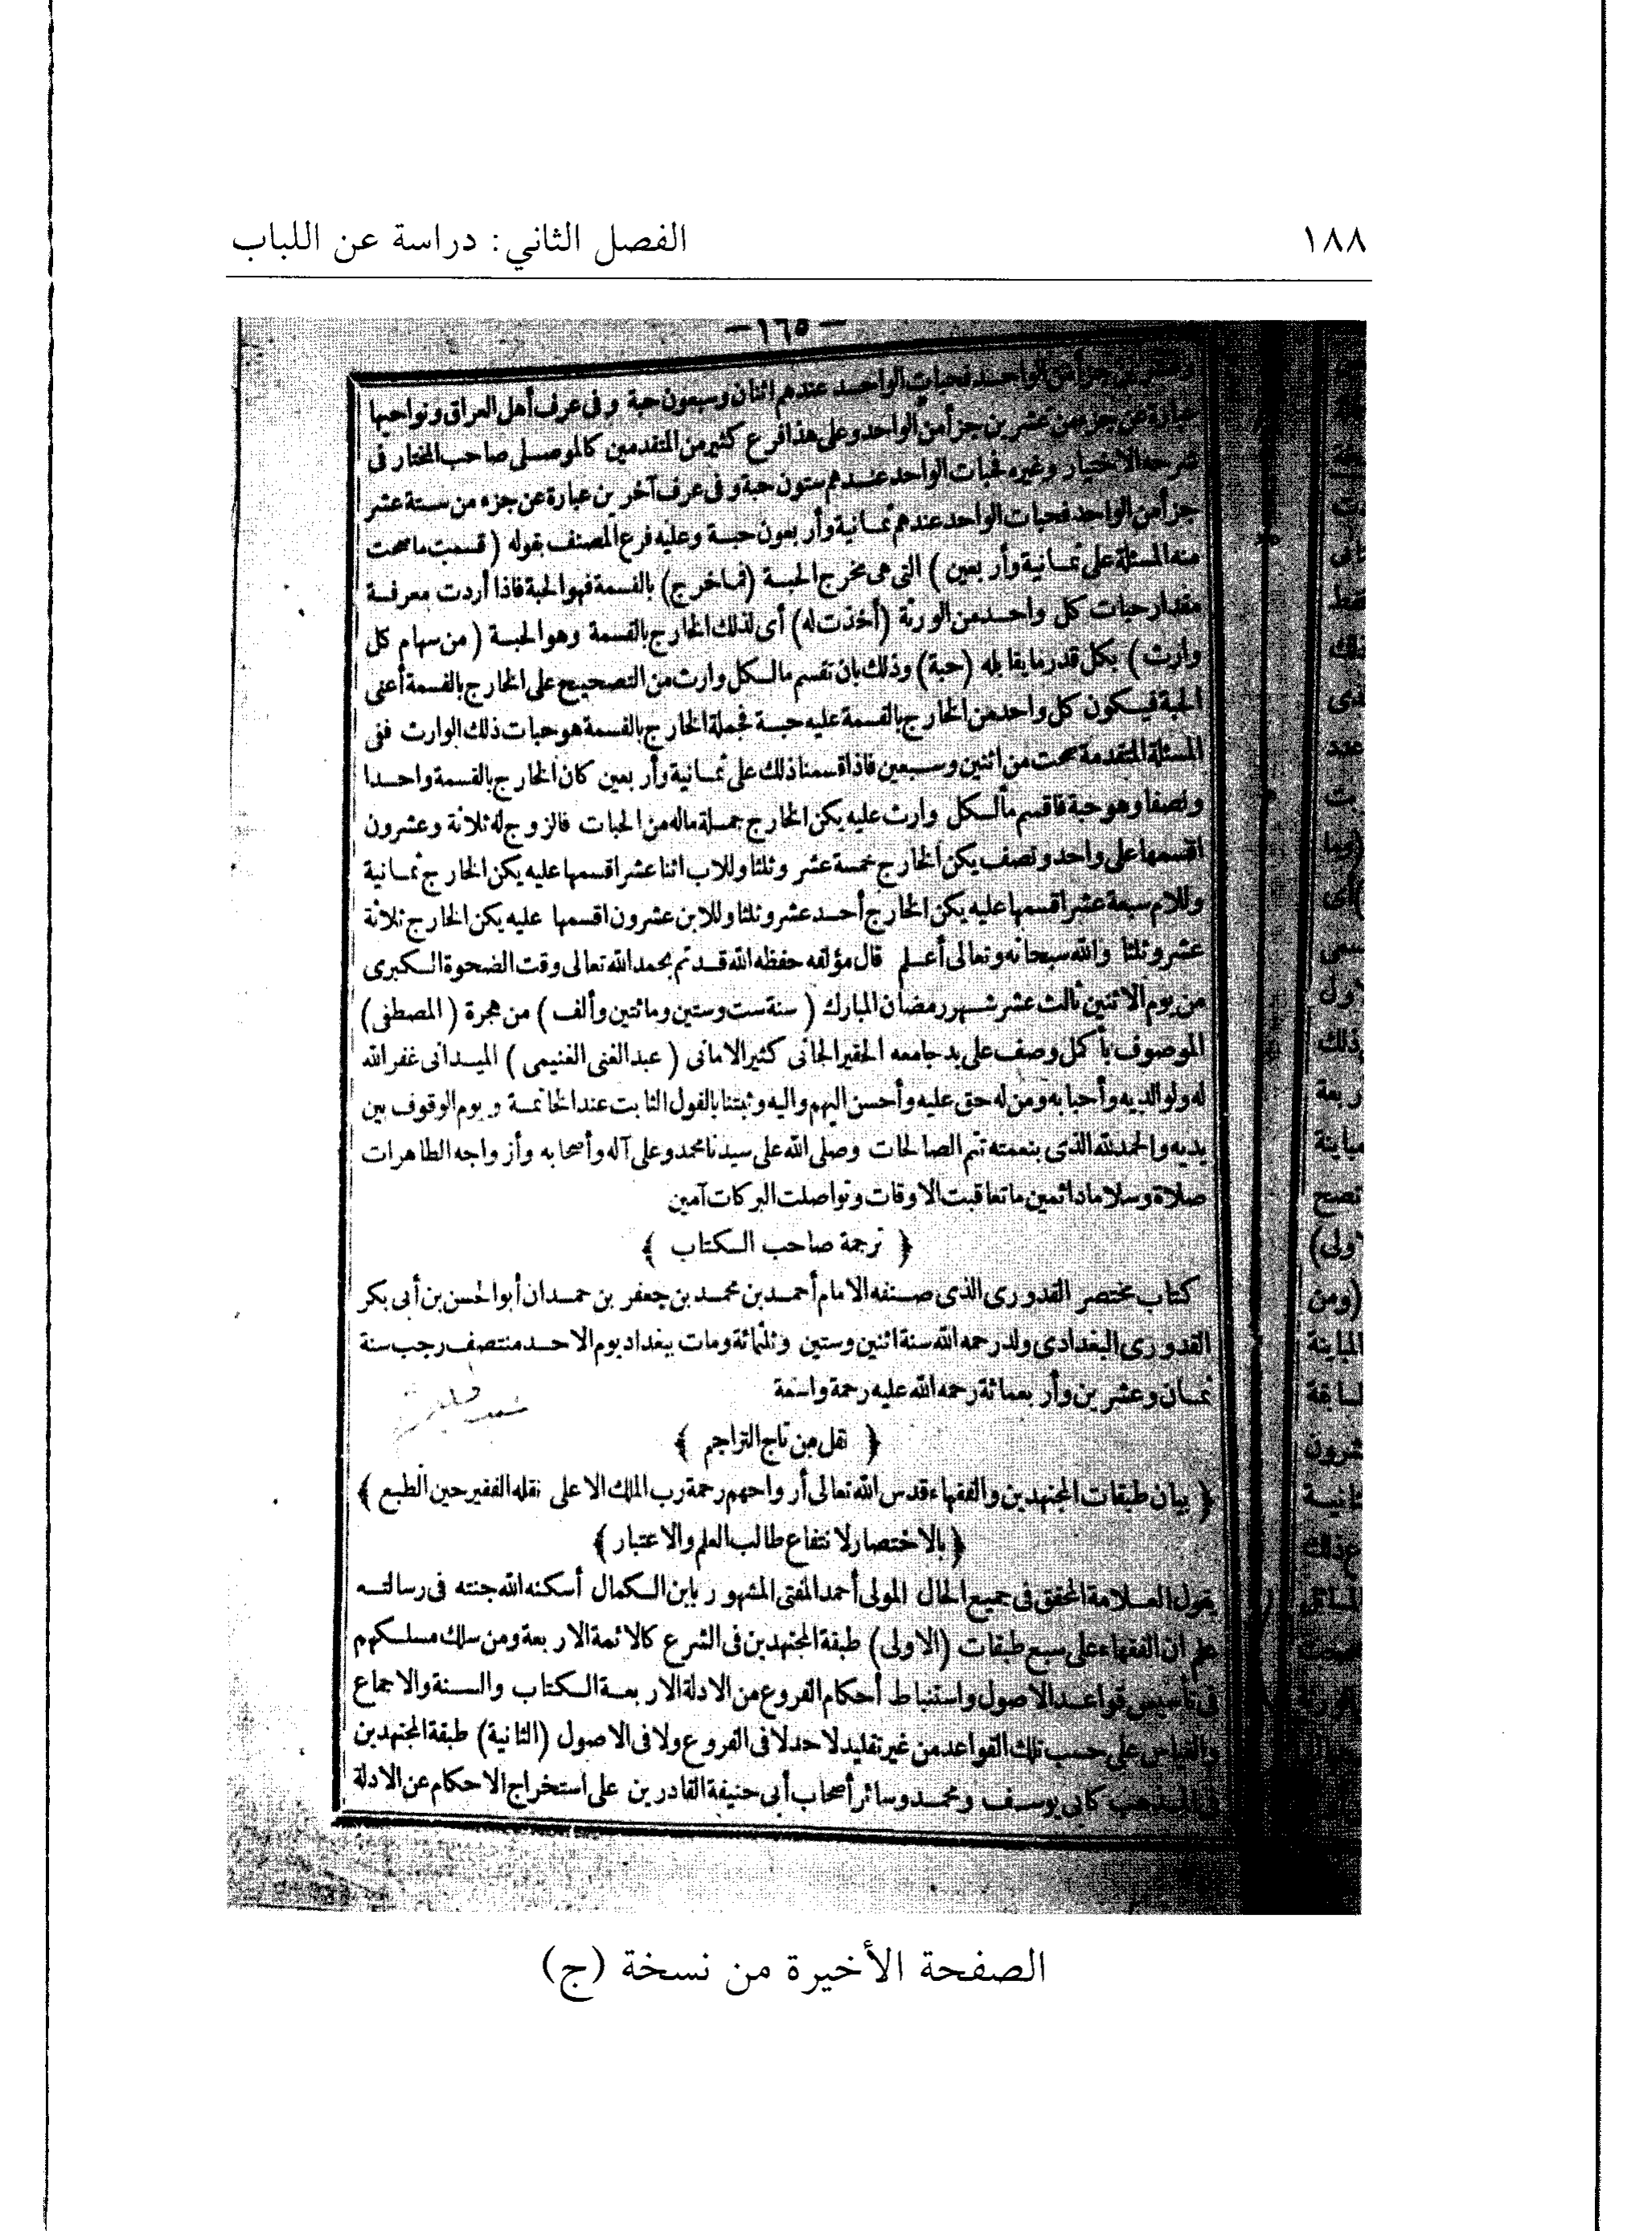 ١٨٨
الفصل الثاني: دراسة عن اللباب
— ١٦٥ —
جزأ من الواحد فحبات الواحد عندهم اثنان وسبعون حبة وفى عرف أهل العراق ونواحيها
عبارة عن جزء من عشرين جزأ من الواحد وعلى هذا فرع كثير من المتقدمين كالموصلى صاحب المختار فى
شرحه الاختيار وغيره فحبات الواحد عندهم ستون حبة وفى عرف آخرين عبارة عن جزء من ستة عشر
جزأ من الواحد فحبات الواحد عندهم ثمانية وأربعون حبة وعليه فرع المصنف بقوله ( قسمت ما صحت
منه المسئلة على ثمانية وأربعين ) التى هى مخرج الحبة (فما خرج) بالقسمة فهو الحبة فاذا أردت معرفة
مقدار حبات كل واحد من الورثة (أخذت له) أى لذلك الخارج بالقسمة وهو الحبة (من سهام كل
وارث) بكل قدر ما يقابله (حبة) وذلك بان تقسم ما لكل وارث من التصحيح على الخارج بالقسمة أعنى
الحبة فيكون كل واحد من الخارج بالقسمة عليه حبة فجملة الخارج بالقسمة هو حبات ذلك الوارث ففى
المسئلة المتقدمة صحت من اثنين وسبعين فاذا قسمنا ذلك على ثمانية وأربعين كان الخارج بالقسمة واحدا
ونصفا وهو حبة فاقسم ما لكل وارث عليه يكن الخارج جملة ماله من الحبات فالزوج له ثلاثة وعشرون
اقسمها على واحد ونصف يكن الخارج خمسة عشر وثلثا وللاب اثنا عشر اقسمها عليه يكن الخارج ثمانية
وللام سبعة عشر اقسمها عليه يكن الخارج أحد عشر وثلثا وللابن عشرون اقسمها عليه يكن الخارج ثلاثة
عشر وثلثا والله سبحانه وتعالى أعلم قال مؤلفه حفظه الله قد تم بحمد الله تعالى وقت الضحوة الكبرى
من يوم الاثنين ثالث عشر شهر رمضان المبارك ( سنة ست وستين ومائتين وألف ) من هجرة ( المصطفى )
الموصوف بأكمل وصف على يد جامعه الحقير الجانى كثير الامانى ( عبد الغنى الغنيمى ) الميدانى غفر الله
له ولوالديه وأحبابه ومن له حق عليه وأحسن اليهم واليه وثبتنا بالقول الثابت عند الخاتمة ويوم الوقوف بين
يديه والحمد لله الذى بنعمته تتم الصالحات وصلى الله على سيدنا محمد وعلى آله وأصحابه وأزواجه الطاهرات
صلاة وسلاما دائمين ما تعاقبت الاوقات وتواصلت البركات آمين
﴿ ترجمة صاحب الكتاب ﴾
كتاب مختصر القدورى الذى صنفه الامام أحمد بن محمد بن جعفر بن حمدان أبو الحسن بن أبى بكر
القدورى البغدادى ولد رحمه الله سنة اثنين وستين وثلثمائة ومات ببغداد يوم الاحد منتصف رجب سنة
ثمان وعشرين وأربعمائة رحمه الله عليه رحمة واسعة
﴿ نقل من تاج التراجم ﴾
﴿ بيان طبقات المجتهدين والفقهاء قدس الله تعالى أرواحهم رحمة رب الملك الاعلى نقله الفقير حين الطبع ﴾
﴿ بالاختصار لانتفاع طالب العلم والاعتبار ﴾
يقول العلامة المحقق فى جميع الحال المولى أحمد المفتى المشهور بابن الكمال أسكنه الله جنته فى رسالته
علم ان الفقهاء على سبع طبقات (الاولى) طبقة المجتهدين فى الشرع كالائمة الاربعة ومن سلك مسلكهم
فى تأسيس قواعد الاصول واستنباط أحكام الفروع من الادلة الاربعة الكتاب والسنة والاجماع
والقياس على حسب تلك القواعد من غير تقليد لاحد لا فى الفروع ولا فى الاصول (الثانية) طبقة المجتهدين
فى المذهب كابى يوسف ومحمد وسائر أصحاب أبى حنيفة القادرين على استخراج الاحكام عن الادلة
الصفحة الأخيرة من نسخة (ج)